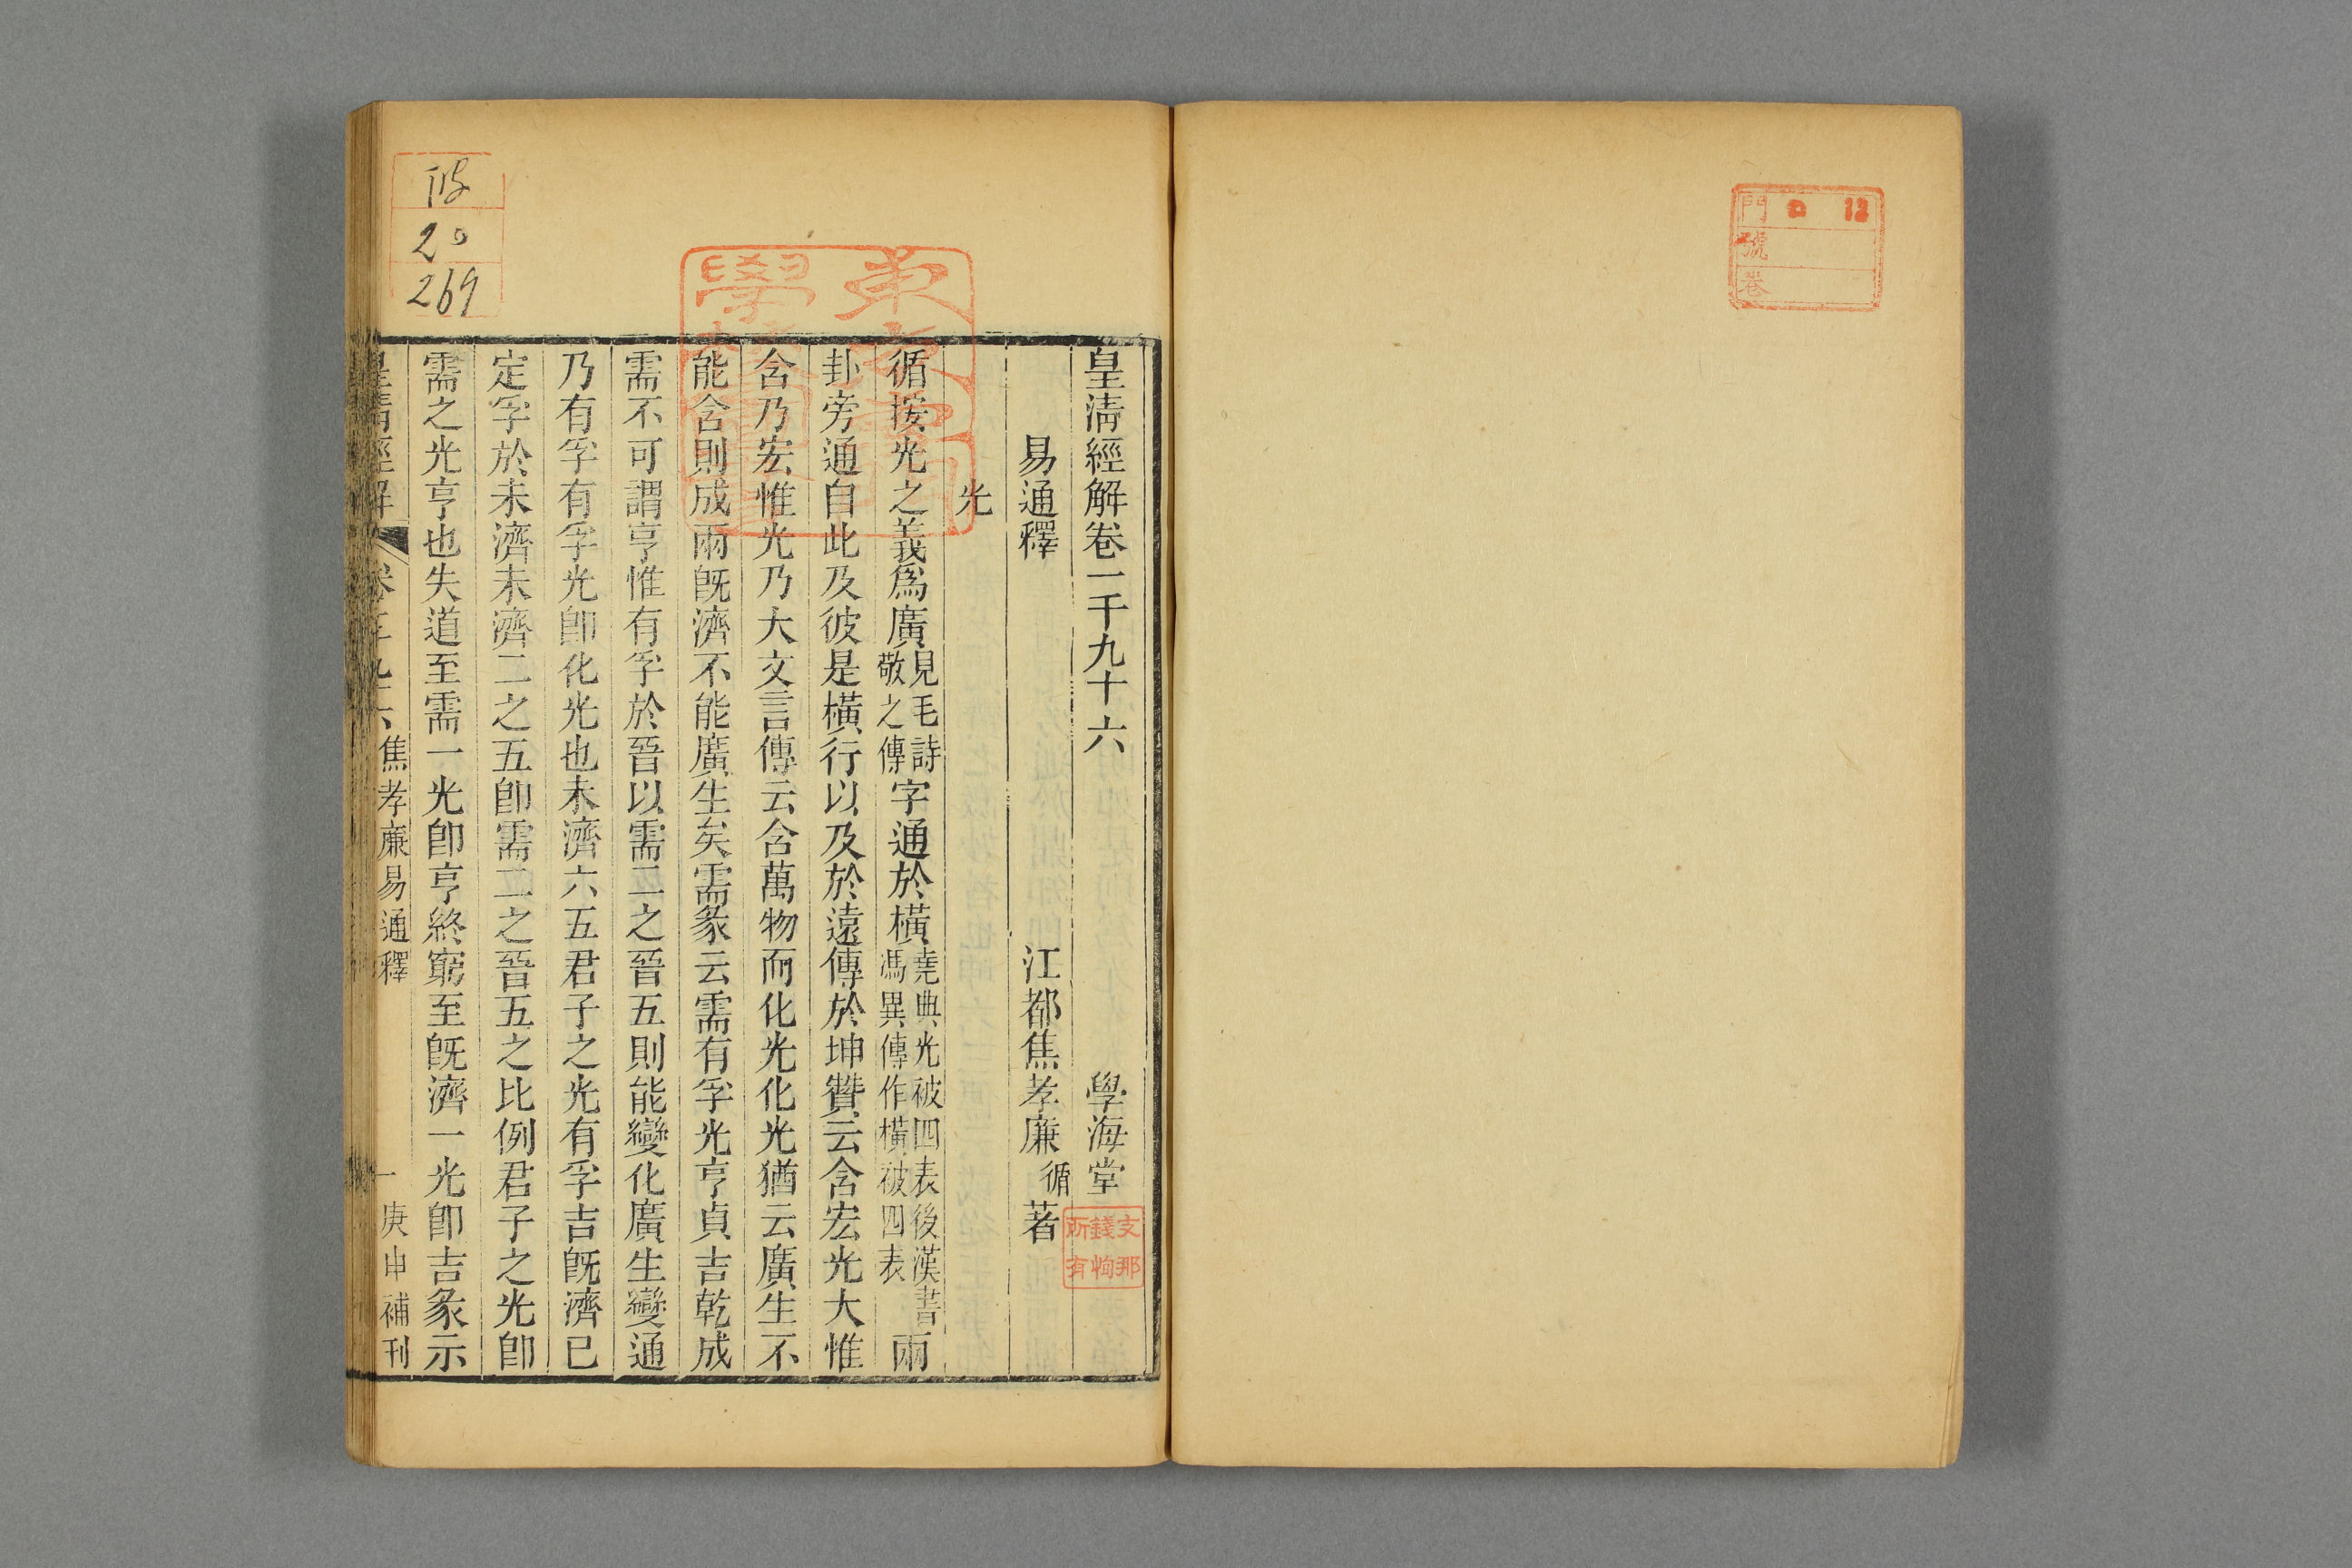 門 口 13
號
卷
皇淸經解卷一千九十六 學海堂
支那
錢恂
所有
易通釋 江都焦孝廉循著
光
循按光之義爲廣見毛詩敬之傳字通於橫堯典光被四表後漢書馮異傳作橫被四表兩
卦旁通自此及彼是橫行以及於遠傳於坤贊云含宏光大惟
含乃宏惟光乃大文言傳云含萬物而化光化光猶云廣生不
能含則成兩旣濟不能廣生矣需彖云需有孚光亨貞吉乾成
需不可謂亨惟有孚於晉以需二之晉五則能變化廣生變通
乃有孚有孚光卽化光也未濟六五君子之光有孚吉旣濟已
定孚於未濟未濟二之五卽需二之晉五之比例君子之光卽
需之光亨也失道至需一光卽亨終窮至旣濟一光卽吉彖示
皇淸經解 卷千九十六 焦孝廉易通釋 一 庚申補刊
20
269